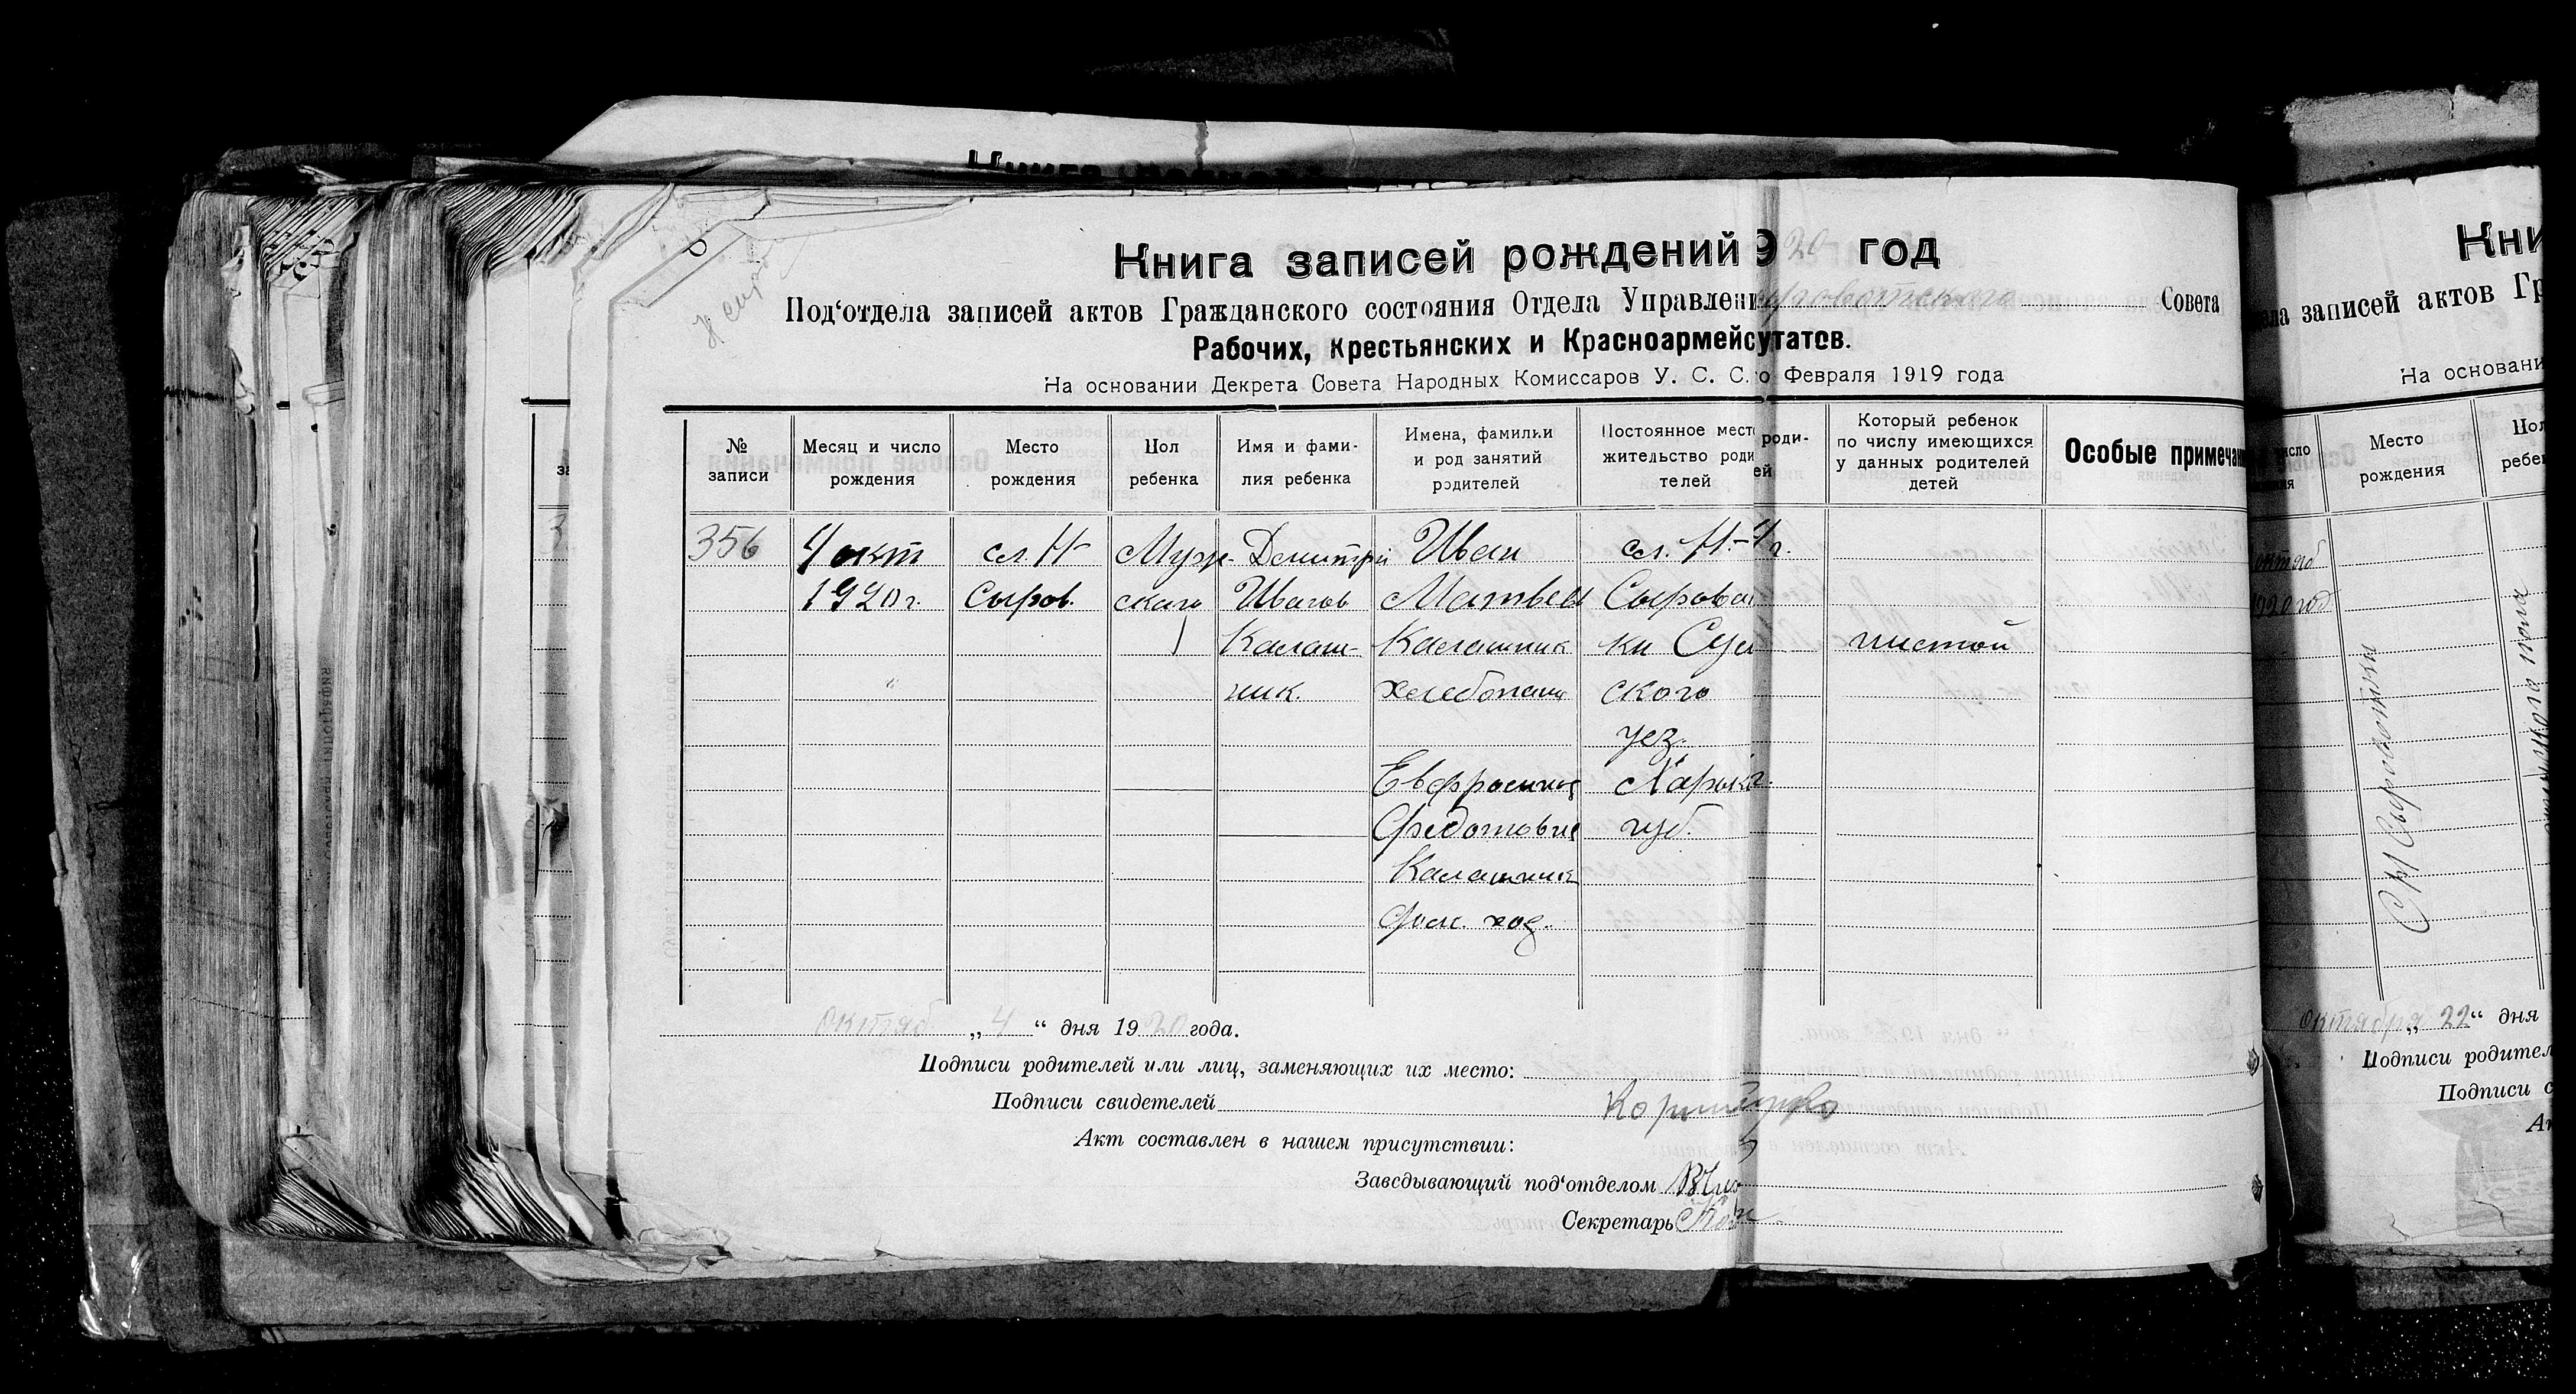 Книга записей рождений 920 год
Под'отдела записей актов Гражданского состояния Отдела Управлени Совета
Рабочих, Крестьянских и Красноармейс утатов.
На основании Декрета Совета Народных Комиссаров У. С. С. о Февраля 1919 года
№ записи
Месяц и число рождения
Место рождения
Пол ребенка
Имя и фами-
лия ребенка
Имена, фамильи
и род занятий
родителей
Постоянное место
жительство роди
телей
Который ребенок
по числу имеющихся
у данных родителей
детей
Особые примечан
356
4 окт
1920 г.
сл. Н-
Сыров.
Муж-
ского
Дмитрий
Иванов
Калаш-
ник.
Иван
Матвеев
Калашник
хлебопаш
Евфросиния
Федотовна
Калашник
дом. хоз.
сл. Н.-
Сыроват
ки Сум
ского
уез.
Харьк.
губ.
шестой
октяб „4“ дня 1920 года.
Подписи родителей или лиц, заменяющих их место:
Подписи свидетелей
Акт составлен в нашем присутствии:
Заведывающий под'отделом
Секретарь
Кни
ла записей актов Гр
На основани
Место
рождения
Пол
ребен
октяб
1920 год
октября „22“ дня
Подписи родител
Подписи с
Ак